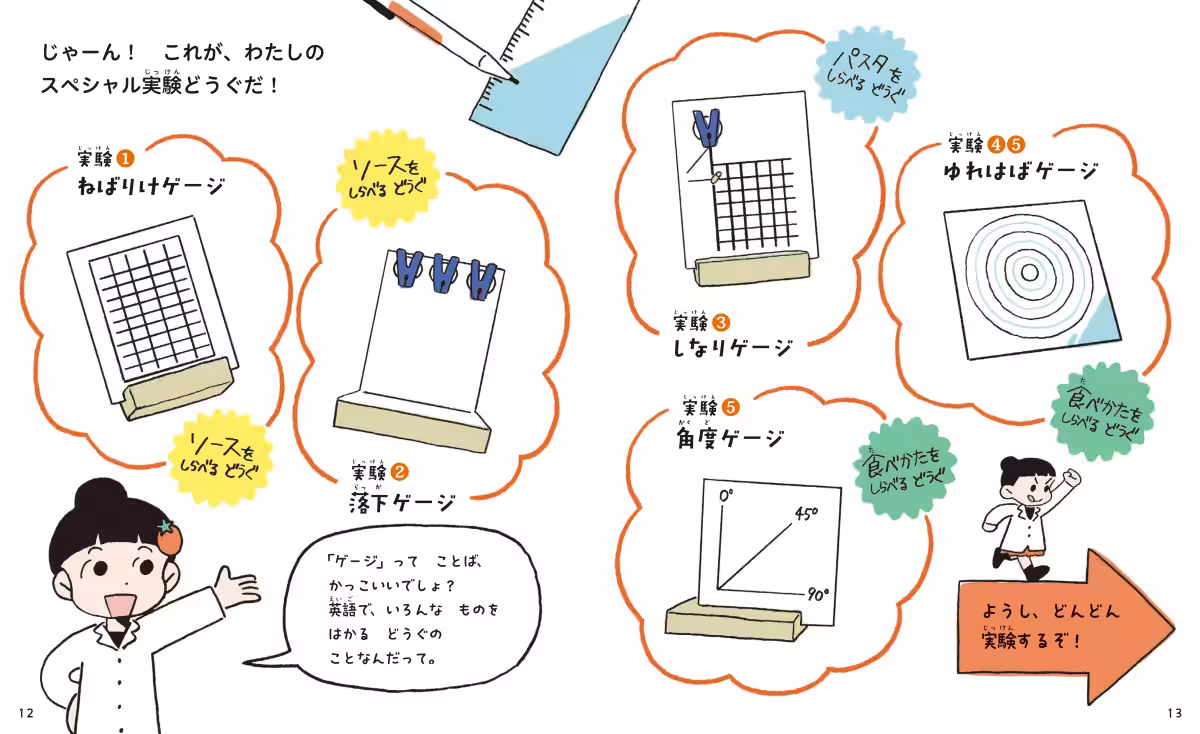 じゃーん！　これが、わたしの
スペシャル実験どうぐだ！
じっけん
実験1
ねばりけゲージ
ソースを
しらべる どうぐ
ソースを
しらべる どうぐ
じっけん
実験2
らっか
落下ゲージ
「ゲージ」って　ことば、
かっこいいでしょ？
えいご
英語で、いろんな　ものを
はかる　どうぐの
ことなんだって。
12
パスタを
しらべる どうぐ
じっけん
実験3
しなりゲージ
じっけん
実験45
ゆれはばゲージ
た
食べかたを
しらべる どうぐ
じっけん
実験5
かくど
角度ゲージ
た
食べかたを
しらべる どうぐ
0°
45°
90°
ようし、どんどん
じっけん
実験するぞ！
13